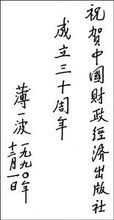 祝贺中國财政經済出版社
成立三十周年
薄一波
一九九〇年
十二月一日